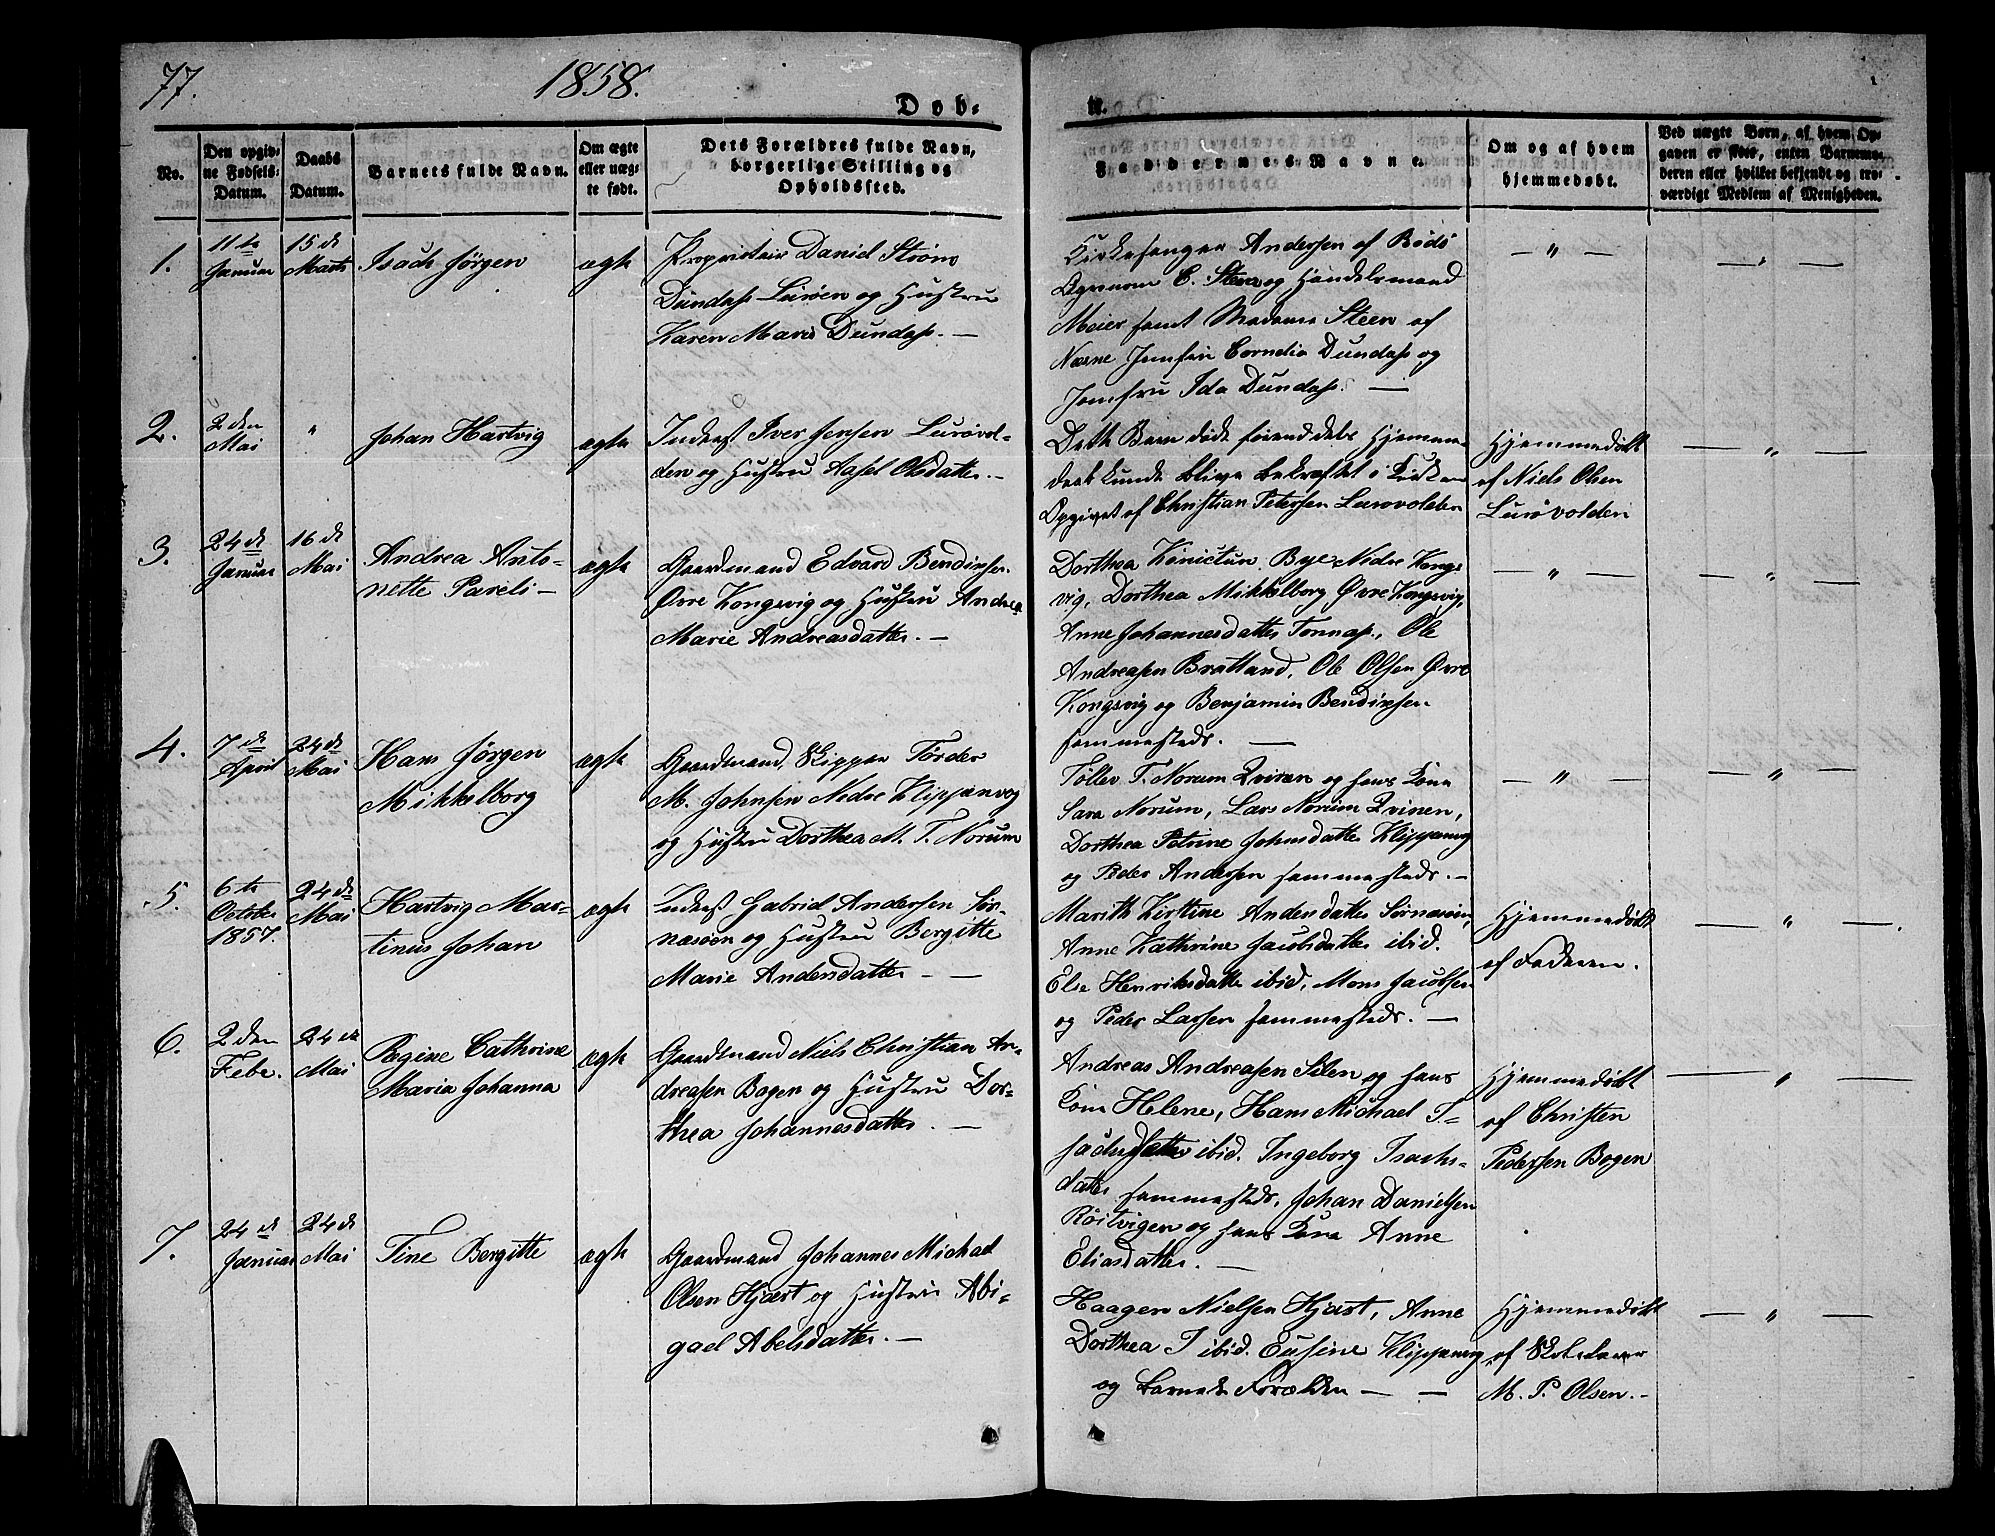 77.
1858.
Døb-
te.
No.
Den opgiv-
ne Fødsels-
Datum.
Daabs
Datum.
Barnets fulde Navn.
Om ægte
eller uæg-
te født.
Dets Forældres fulde Navn,
borgerlige Stilling og
Opholdssted.
Faddernes Navne.
Om og af hvem
hjemmedøbt.
Ved uægte Børn, af hvem Op-
gaven er skeet, enten Barnemo-
deren eller hvilket bekjendt og tro-
værdigt Medlem af Menigheden.
1.
11te
Januar
15de
Marts
Isach Jørgen
ægte
Proprietair Daniel Strøm
Dundass Lurøen og Hustru
Karen Marie Dundass. —
Kirkesanger Andersen af Rødø
C. Steen og Handelsmand
Meier samt Madame Steen af
Næsne Jomfru Cornelia Dundass og
Jomfru Ida Dundass. —
— " —
— " —
2.
2den
Mai
"
Johan Hartvig
ægte
Inderst Iver Jensen Lurøvol-
den og Hustru Aasel Olsdatter. —
Dette Barn døde førend dets Hjemme-
daab kunde blive bekræftet i Kirken
Opgivet af Christian Petersen Lurøvolden
Hjemmedøbt
af Niels Olsen
Lurøvolden
— " —
3.
24de
Januar
16de
Mai
Andrea Anto-
nette Pareli —
ægte
Gaardmand Edvard Bendixsen
Øvre Kongsvig og Hustru Andrea
Marie Andreasdatter. —
Dorthea Bye Nedre Kongs
vig, Dorthea Mikkelborg Øvre Kongsvig,
Anne Johannesdatter Tonnass, Ole
Andreasen Bratland, Ole Olsen Øvre
Kongsvig og Benjamin Bendixsen
sammesteds. —
— " —
— " —
4.
7de
April
24de
Mai
Hans Jørgen
Mikkelborg
ægte
Gaardmand, Skipper Tørder
M. Johnsen Nedre Klippenvog
og Hustru Dorthea M. T. Norum
Tollev T. Norum Qvinen og hans Kone
Sara Norum, Lars Norum Qvinen,
Dorthea Petrine Johnsdatter Klippenvog
og Peder Andersen sammesteds. —
— " —
— " —
5.
6te
October
1857.
24de
Mai
Hartvig Mar-
tinus Johan
ægte
Inderst Gabriel Andersen Sør-
næsøen og Hustru Bergitte
Marie Andersdatter — —
Marith Kirstine Andersdatter Sørnæsøen,
Anne Kathrine Jacobsdatter ibid.
Else Henriksdatter ibid, Mons Jacobsen
og Peder Larsen sammesteds. —
Hjemmedøbt
af Faderen.
— " —
6.
2den
Febr.
24de
Mai
Regine Cathrine
Maria Johanna
ægte
Gaardmand Niels Christian An-
dreasen Bogen og Hustru Dor-
thea Johannesdatter. —
Andreas Andreasen Silen og hans
Kone Helene, Hans Michael I-
ibid. Ingeborg Isachs-
datter sammesteds, Johan Danielsen
Røitvigen og hans Kone Anne
Eliasdatter. —
Hjemmedøbt
af Christen
Pedersen Bogen
— " —
7.
24de
Januar
24de
Mai
Tine Bergitte
ægte
Gaardmand Johannes Michael
Olsen Hjært og Hustru Abi-
gael Abelsdatter. —
Haagen Nielsen Hjært, Anne
Dorthea I ibid. Eusine Klippenvog
og Barnets Forældre — —
Hjemmedøbt
af Skolelærer
M. P. Olsen. —
— " —